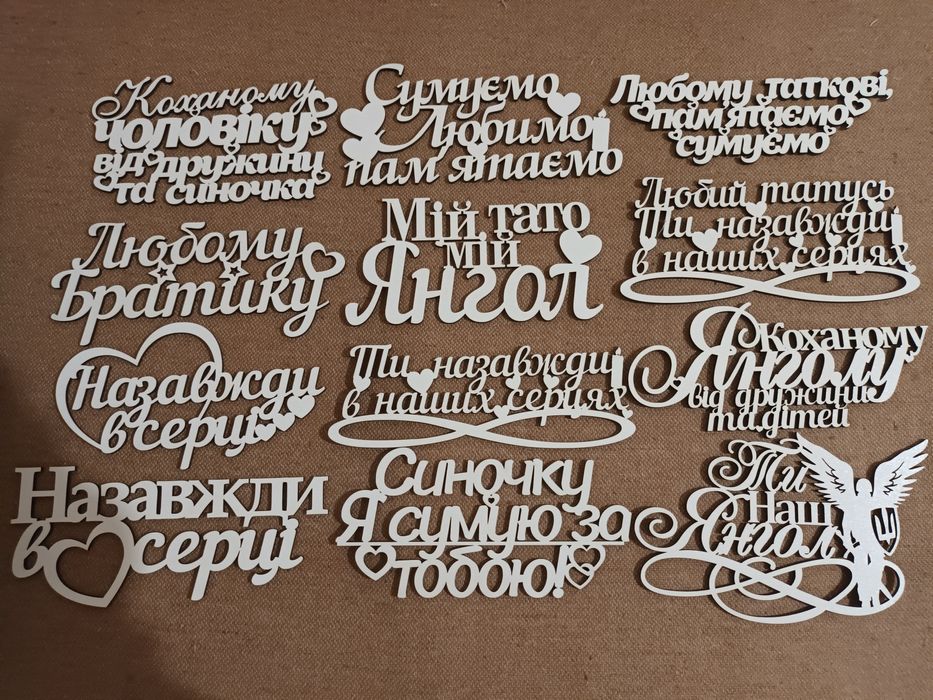 Коханому
чоловіку
від дружини
та синочка
Сумуємо
Любимо
пам'ятаємо
Любому таткові,
пам'ятаємо,
сумуємо
Любому
Братику
Мій тато
мій
Янгол
Любий татусь
Ти назавжди
в наших серцях
Назавжди
в серці
Ти назавжди
в наших серцях
Коханому
Янголу
від дружини
та дітей
Назавжди
в серці
Синочку
Я сумую за
тобою!
Ти
Наш
Янгол